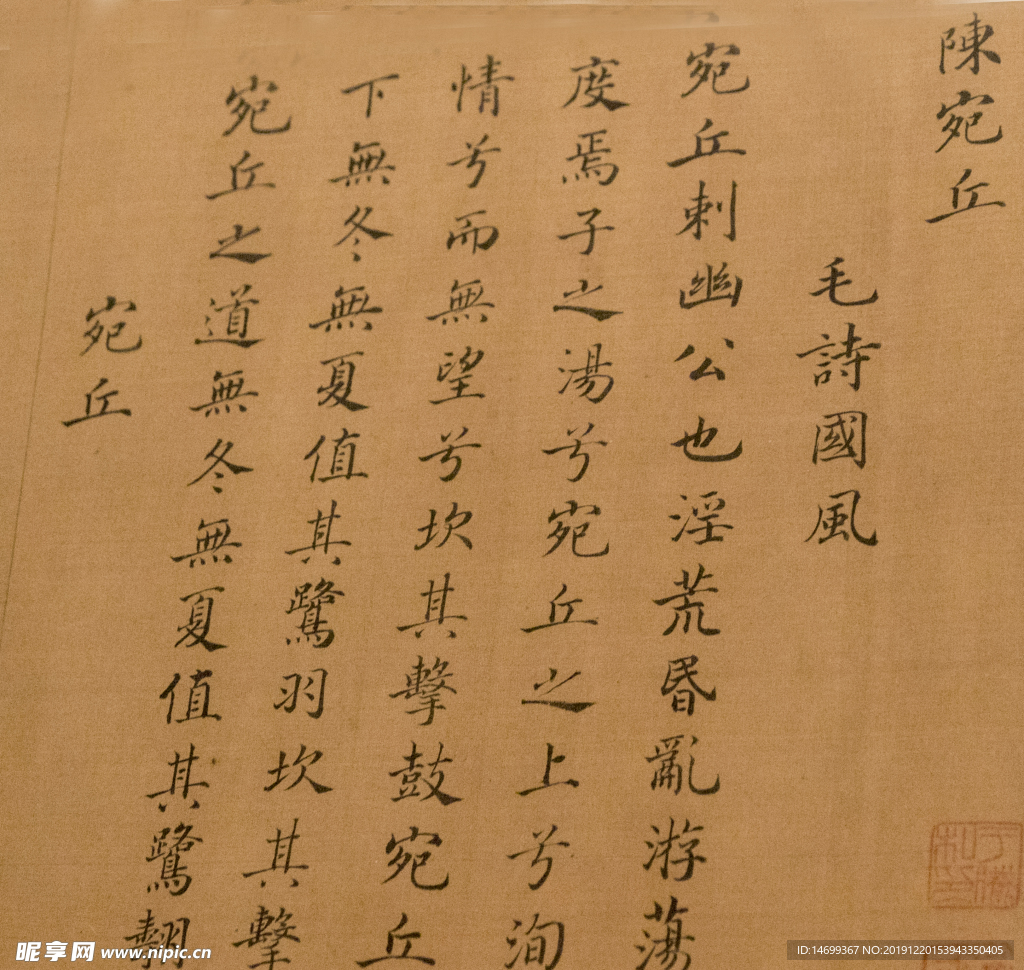 陳宛丘
毛詩國風
宛丘刺幽公也淫荒昬亂游蕩
度焉子之湯兮宛丘之上兮洵
情兮而無望兮坎其擊鼓宛丘
下無冬無夏值其鷺羽坎其擊
宛丘之道無冬無夏值其鷺翿
宛丘
昵享网 www.nipic.cn
ID:14699367 NO:20191220153943350405